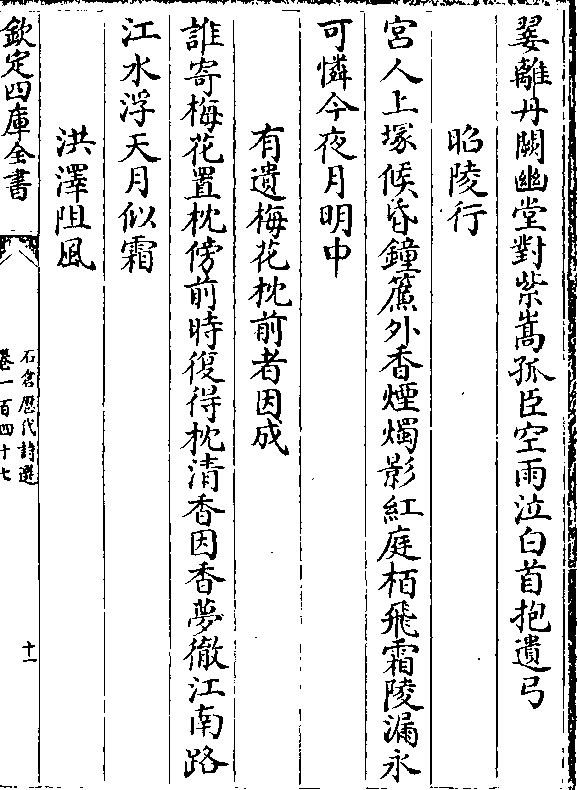 翣離丹闕幽堂對紫嵩孤臣空雨泣白首抱遺弓
昭陵行
宮人上塚候昏鐘簾外香煙燭影紅庭栢飛霜陵漏永
可憐今夜月明中
有遺梅花枕前者因成
誰寄梅花置枕傍前時復得枕清香因香夢徹江南路
江水浮天月似霜
洪澤阻風
欽定四庫全書
石倉歷代詩選
卷一百四十七
十一